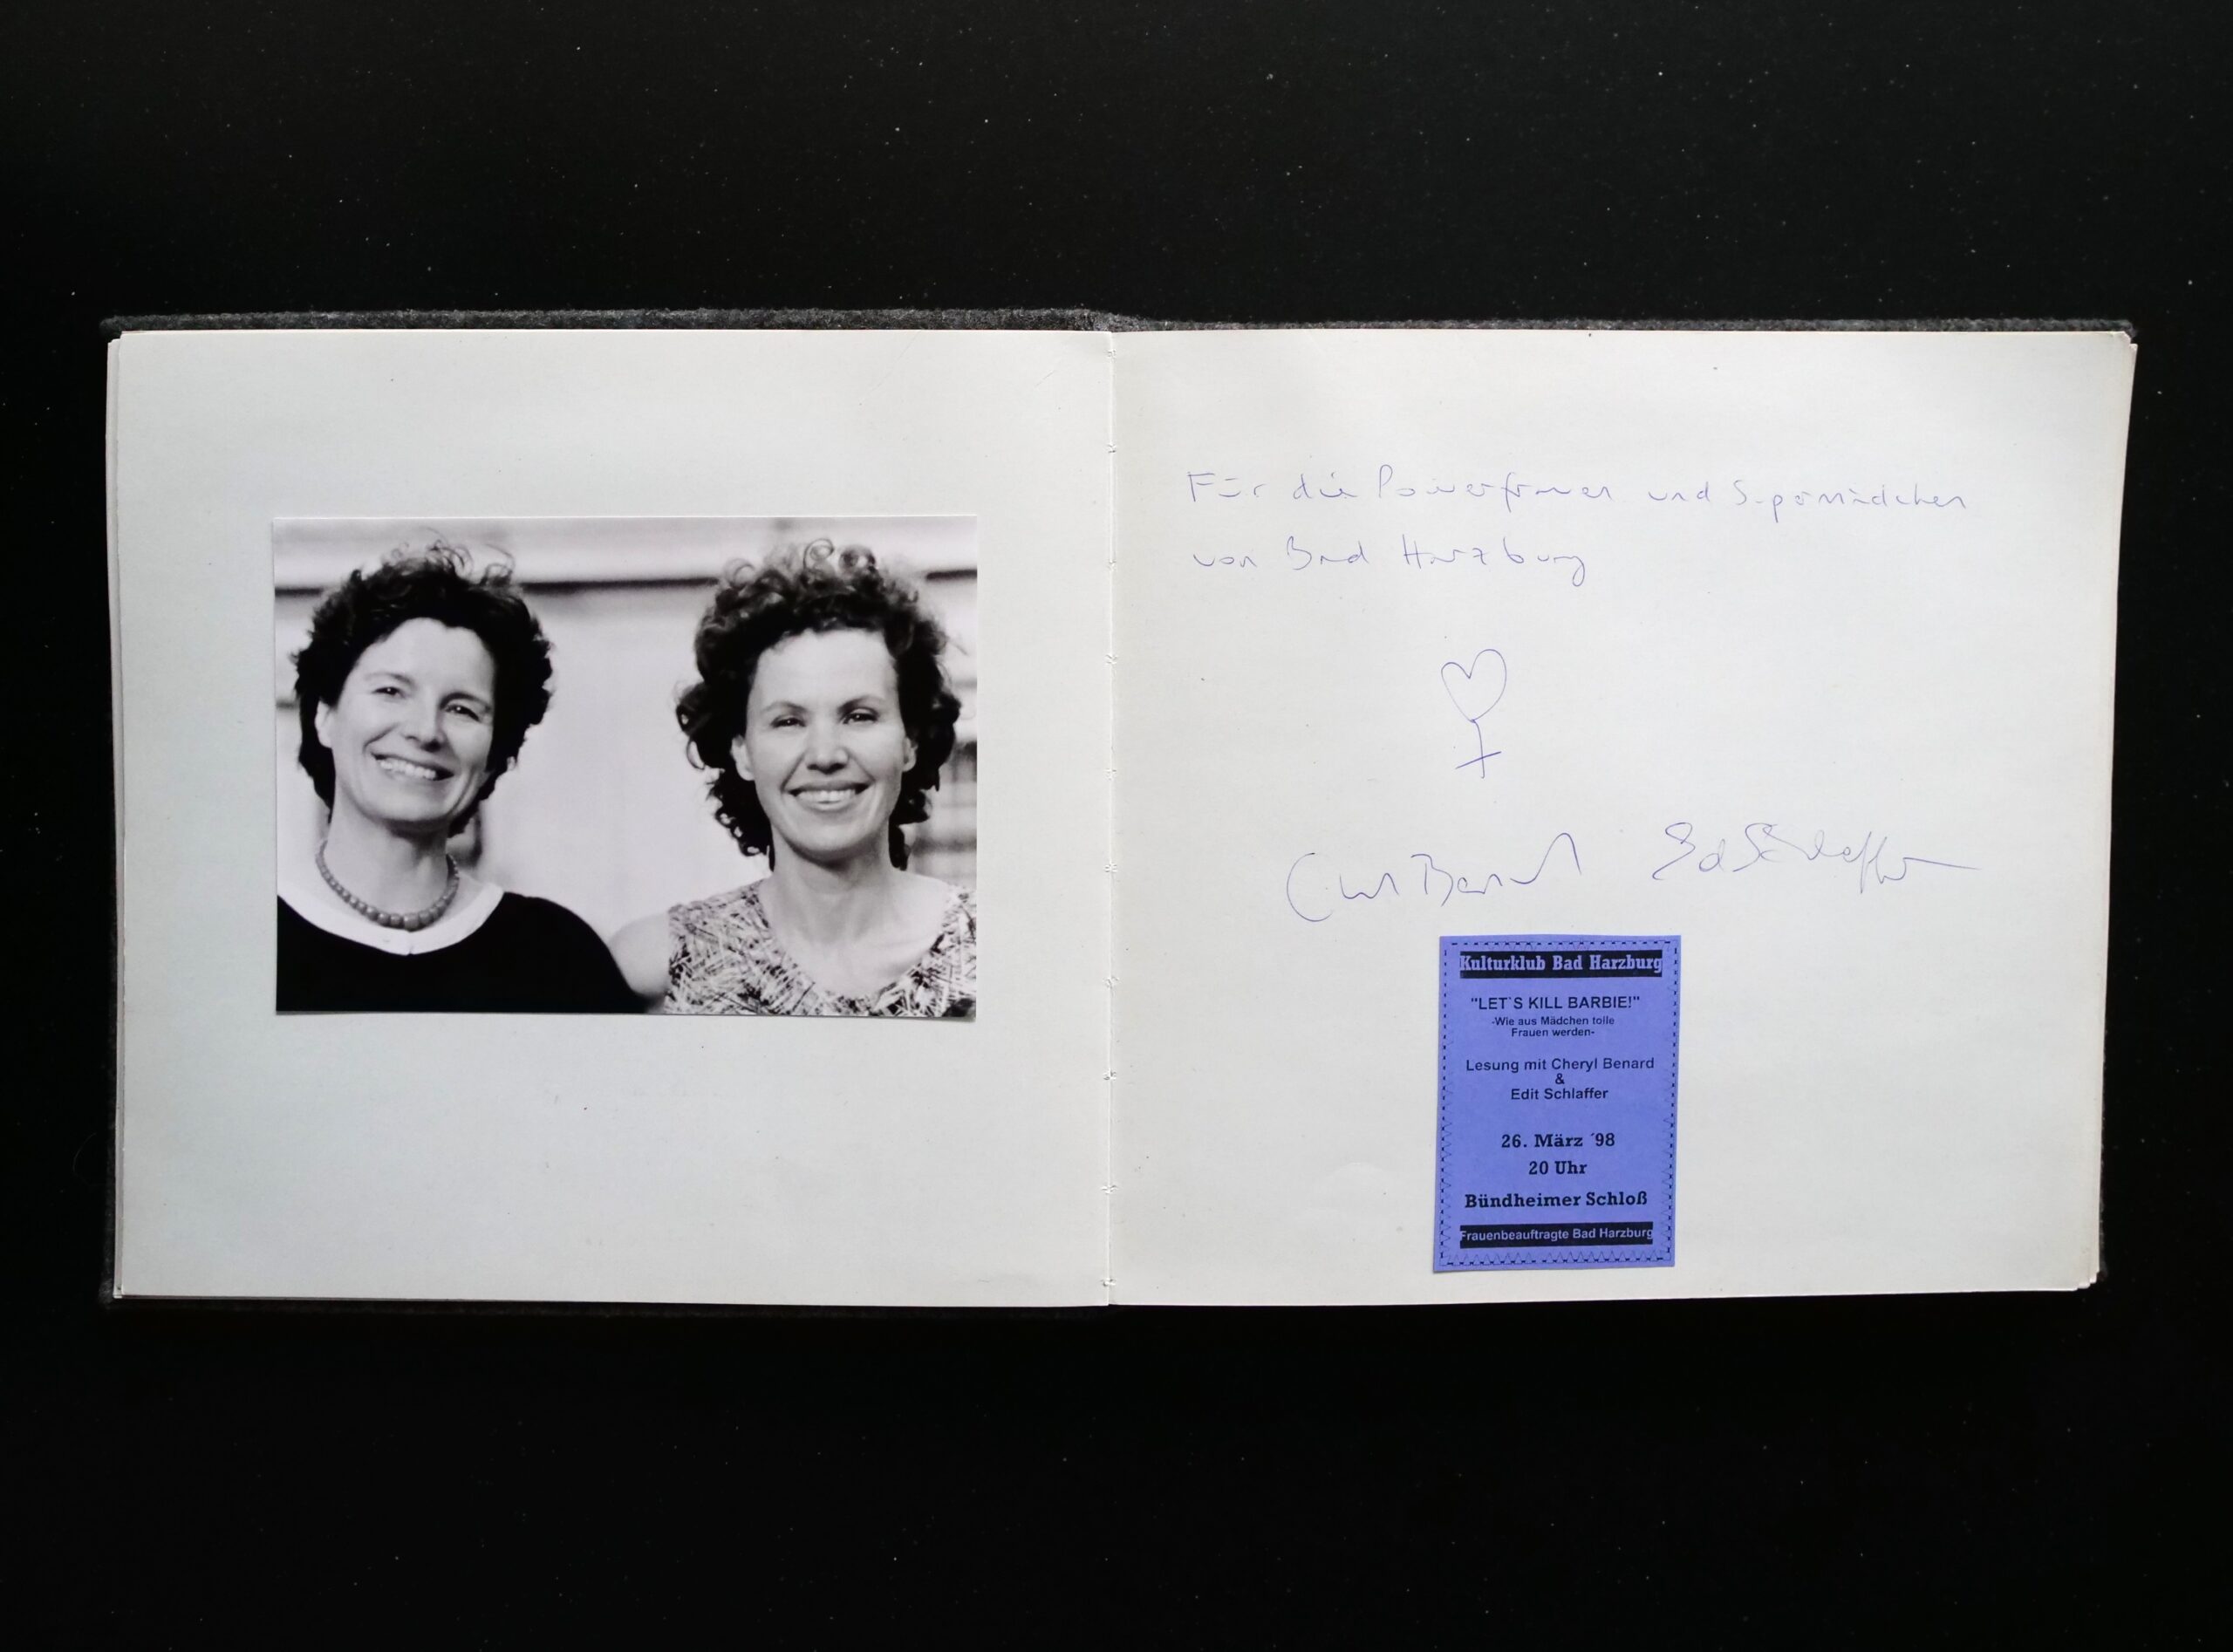 Für die Powerfrauen und Supermädchen
von Bad Harzburg
Cheryl Benard Edit Schlaffer
Kulturklub Bad Harzburg
"LET´S KILL BARBIE!"
-Wie aus Mädchen tolle
Frauen werden-
Lesung mit Cheryl Benard
&
Edit Schlaffer
26. März ´98
20 Uhr
Bündheimer Schloß
Frauenbeauftragte Bad Harzburg